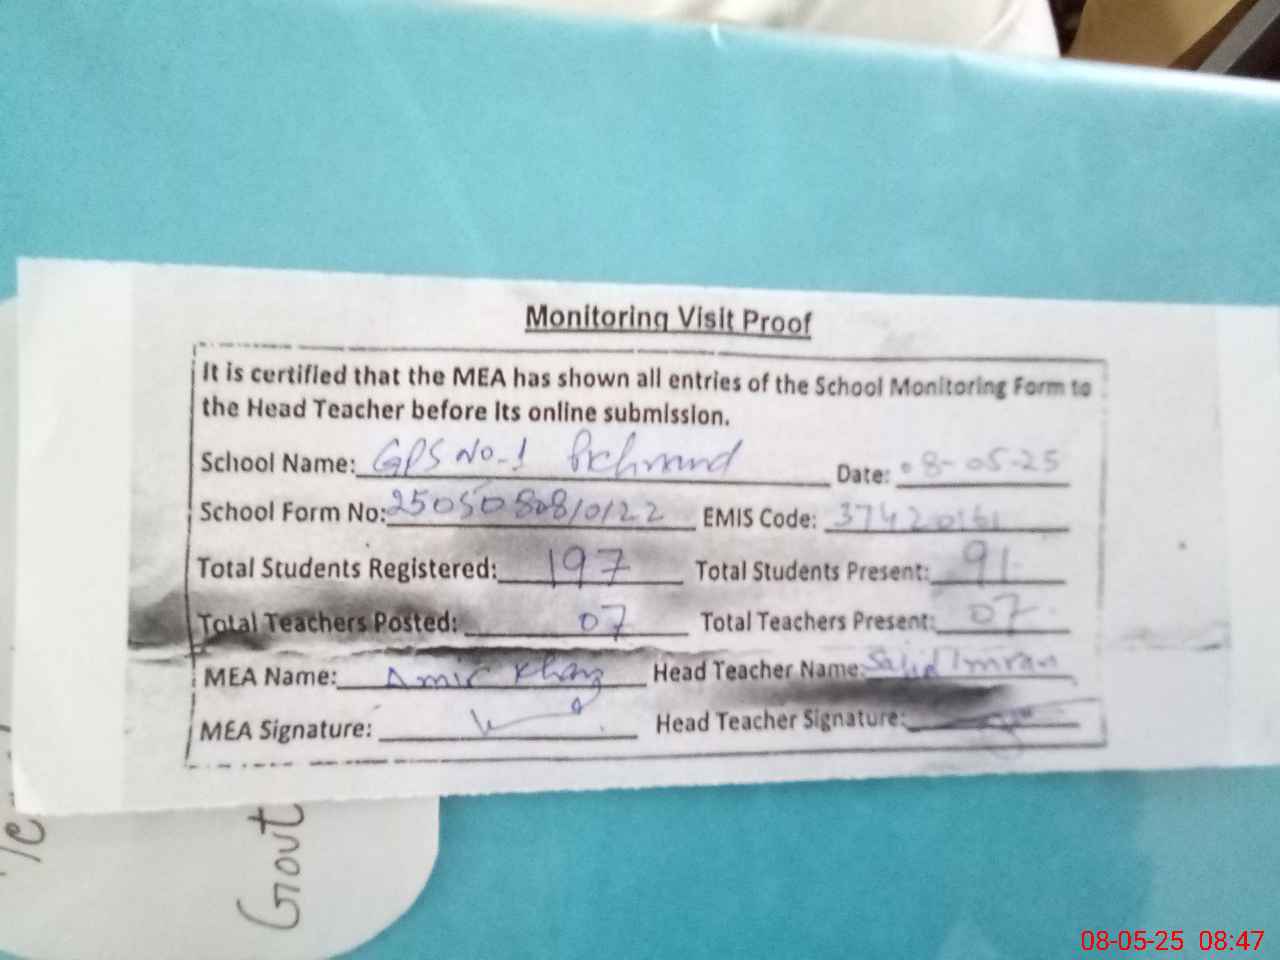 Monitoring Visit Proof
It is certified that the MEA has shown all entries of the School Monitoring Form to
the Head Teacher before its online submission.
School Name: GPS No-1 Date: 08-05-25
School Form No: EMIS Code: 
Total Students Registered: 197 Total Students Present: 91
Total Teachers Posted: 07 Total Teachers Present: 07
MEA Name: Amir Khan Head Teacher Name: Sajid Imran
MEA Signature: Head Teacher Signature:
Govt
08-05-25 08:47